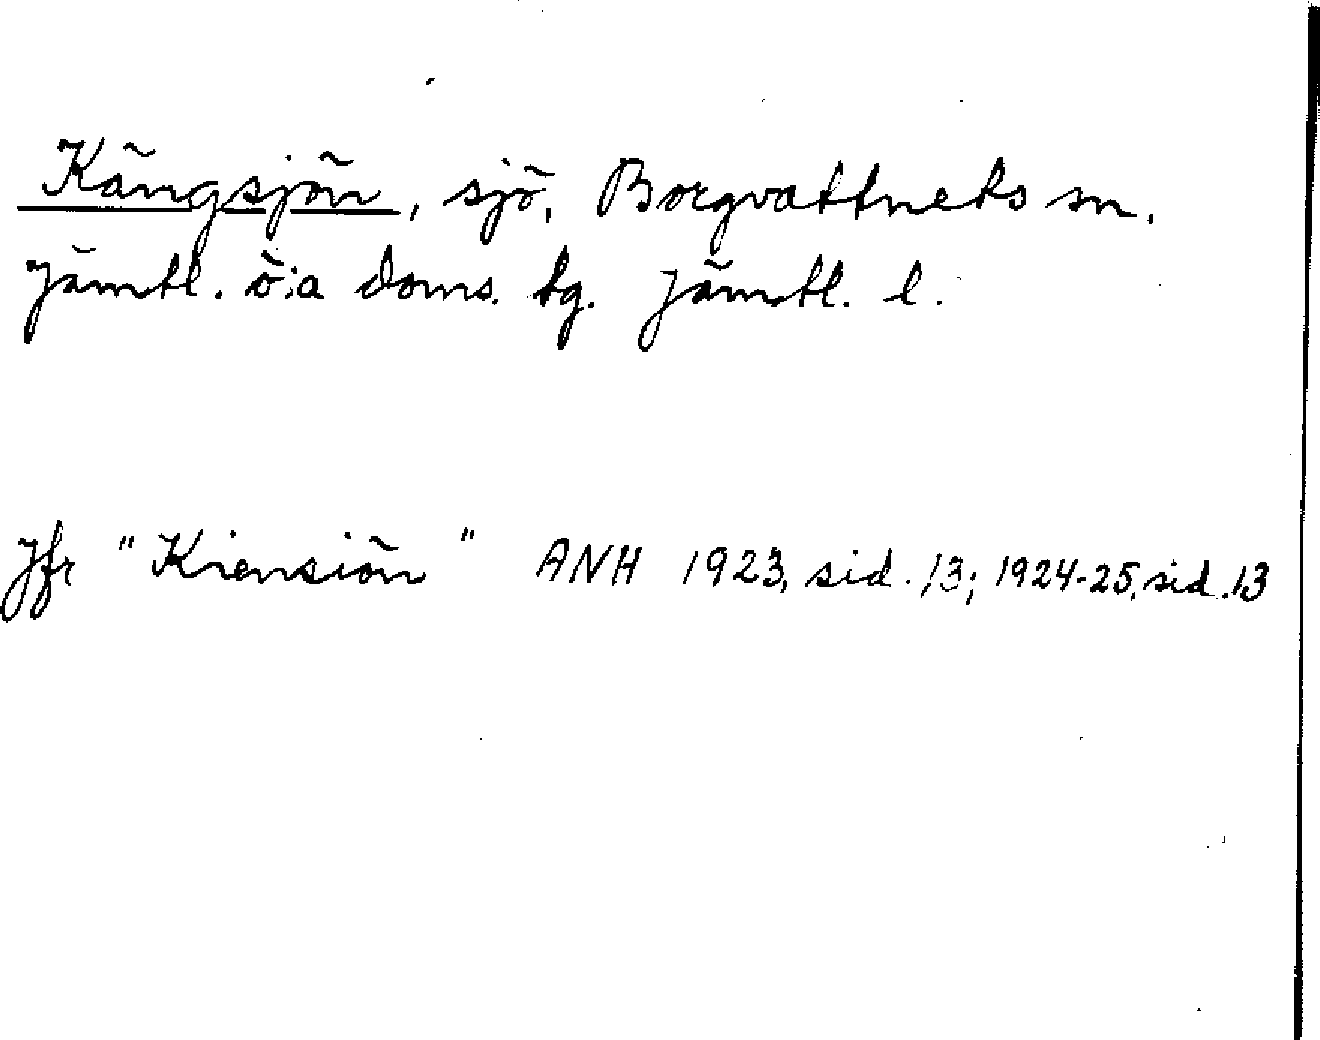 Kängsjön, sjö, Borgvattnets sn.
Jämtl. ö:a doms. tg. Jämtl. l.
Jfr "Kiensiön" ANH 1923, sid. 13; 1924-25, sid. 13